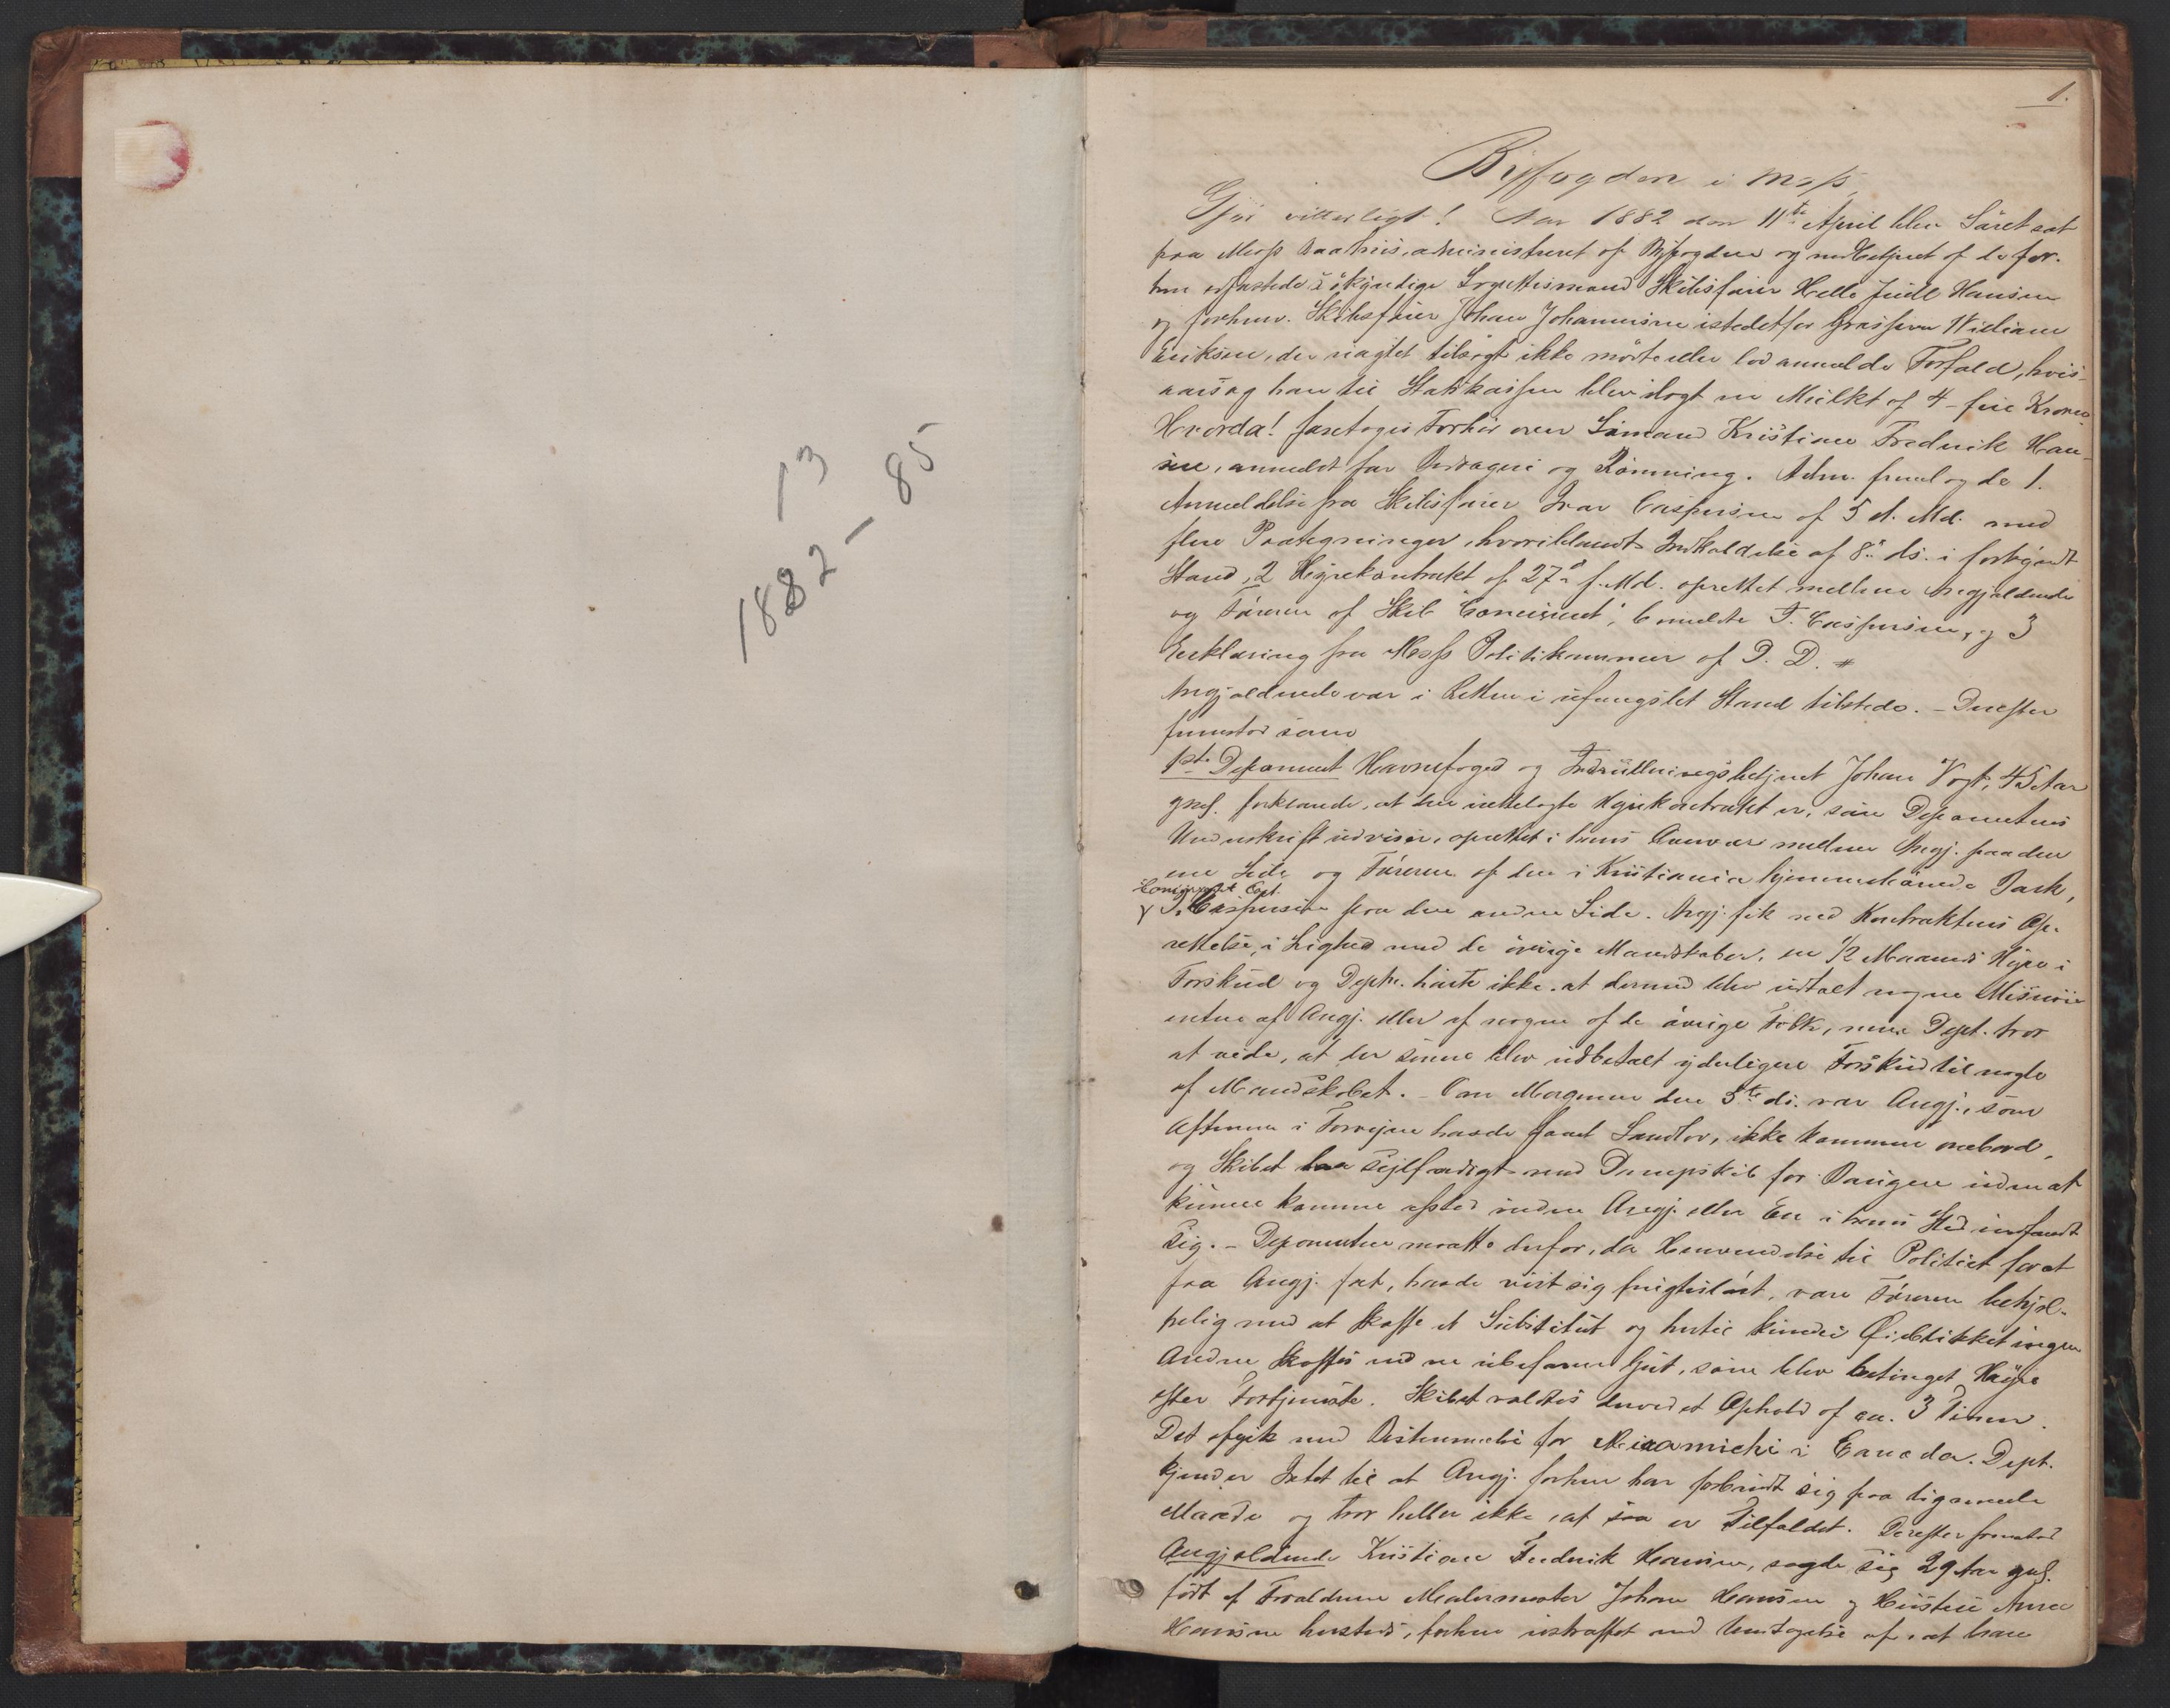 13
1882 – 85
1.
Byfogden i Moss,
Gjør vitterligt! Aar 1882 den 11te April blev Søret sat
paa Moss Raadhus, administreret af Byfogden og medbetjent af de for-
hen edfæstede søkyndige Lagrettesmænd Skibsfører Helle Juell Hansen
og forhenv. Skibsfører Johan Johannesen istedetfor William
Eriksen, der uagtet tilsagt ikke mødte eller lod anmelde Forfald, hvis-
aarsag han til Statskassen blev ilagt en Mulkt af 4 – fire Kroner.
Hvorda! foretoges Forhør over Sømand Kristian Fredrik Han-
sen, anmeldt for Bedrageri og Rømning. Adm. fremlagde 1.
Anmeldelse fra Skibsfører Caspersen af 5 d. Md. med
flere Paategninger, hvoriblandt Indkaldelse af 8de ds. i forkyndt
Stand, 2 Hyrekontrakt af 27de f. Md. oprettet mellem Angjældende
og Føreren af Skib "Convivial", bemeldte T. Caspersen, og 3
Erklæring fra Moss Politikammer af D. D. #
Angjældende var i Retten i ufængslet Stand tilstede. – Derefter
fremstod som
1ste Deponent Havnefoged og Indrulleringsbetjent Johan Vogt, 45 Aar
gml. forklarede, at den irettelagte Hyrekontrakt er, som Deponentens
Underskrift udviser, oprettet i hans Nærvær mellem Angj. paa den
ene Side og Føreren af den i Kristiania hjemmehørende Bark,
Capt.
T. Caspersen paa den anden Side. Angj. fik ved Kontraktens Op-
rettelse, i Lighed med de øvrige Mandskaber, en 1/2 Maaneds Hyre i
Forskud og Depten. hørte ikke at dermed blev udtalt nogen Misnøie
enten af Angj. eller af nogen af de øvrige Folk, men Dept. tror
at vide, at der senere blev udbetalt yderligere Forskud til nogle
af Mandskabet. – Om Morgenen den 5te ds. var Angj., som
Aftenen i Forveien havde faaet Landlov, ikke kommen ombord,
og Skibet laa sejlfærdigt med Dampskib for Baugen uden at
kunne komme afsted uden Angj. eller En i hans Sted indfandt
sig. – Deponenten maatte derfor, da Henvendelse til Politiet for at
faa Angj. fat, havde vist sig frugtesløst, være Føreren behjæl-
pelig med at skaffe et Substitut og hertil kunde i Øieblikket ingen
Anden skaffes end en ubefaren Gut, som blev betinget Hyre
efter Fortjeneste. Skibet voldtes derved et Ophold af ca. 3 Timer.
Det afgik med Bestemmelse for Miramichi i Canada. Dept.
kjender Intet til at Angj. forhen har forbrudt sig paa lignende
Maade og tror heller ikke, at saa er Tilfældet. Derefter fremstod
Angjældende Kristian Fredrik Hansen, sagde sig 29 Aar gml.
født af Forældrene Malermester Johan Hansen og Hustru Anna
Hansen hersteds, forhen ustraffet med Undtagelse af, at han